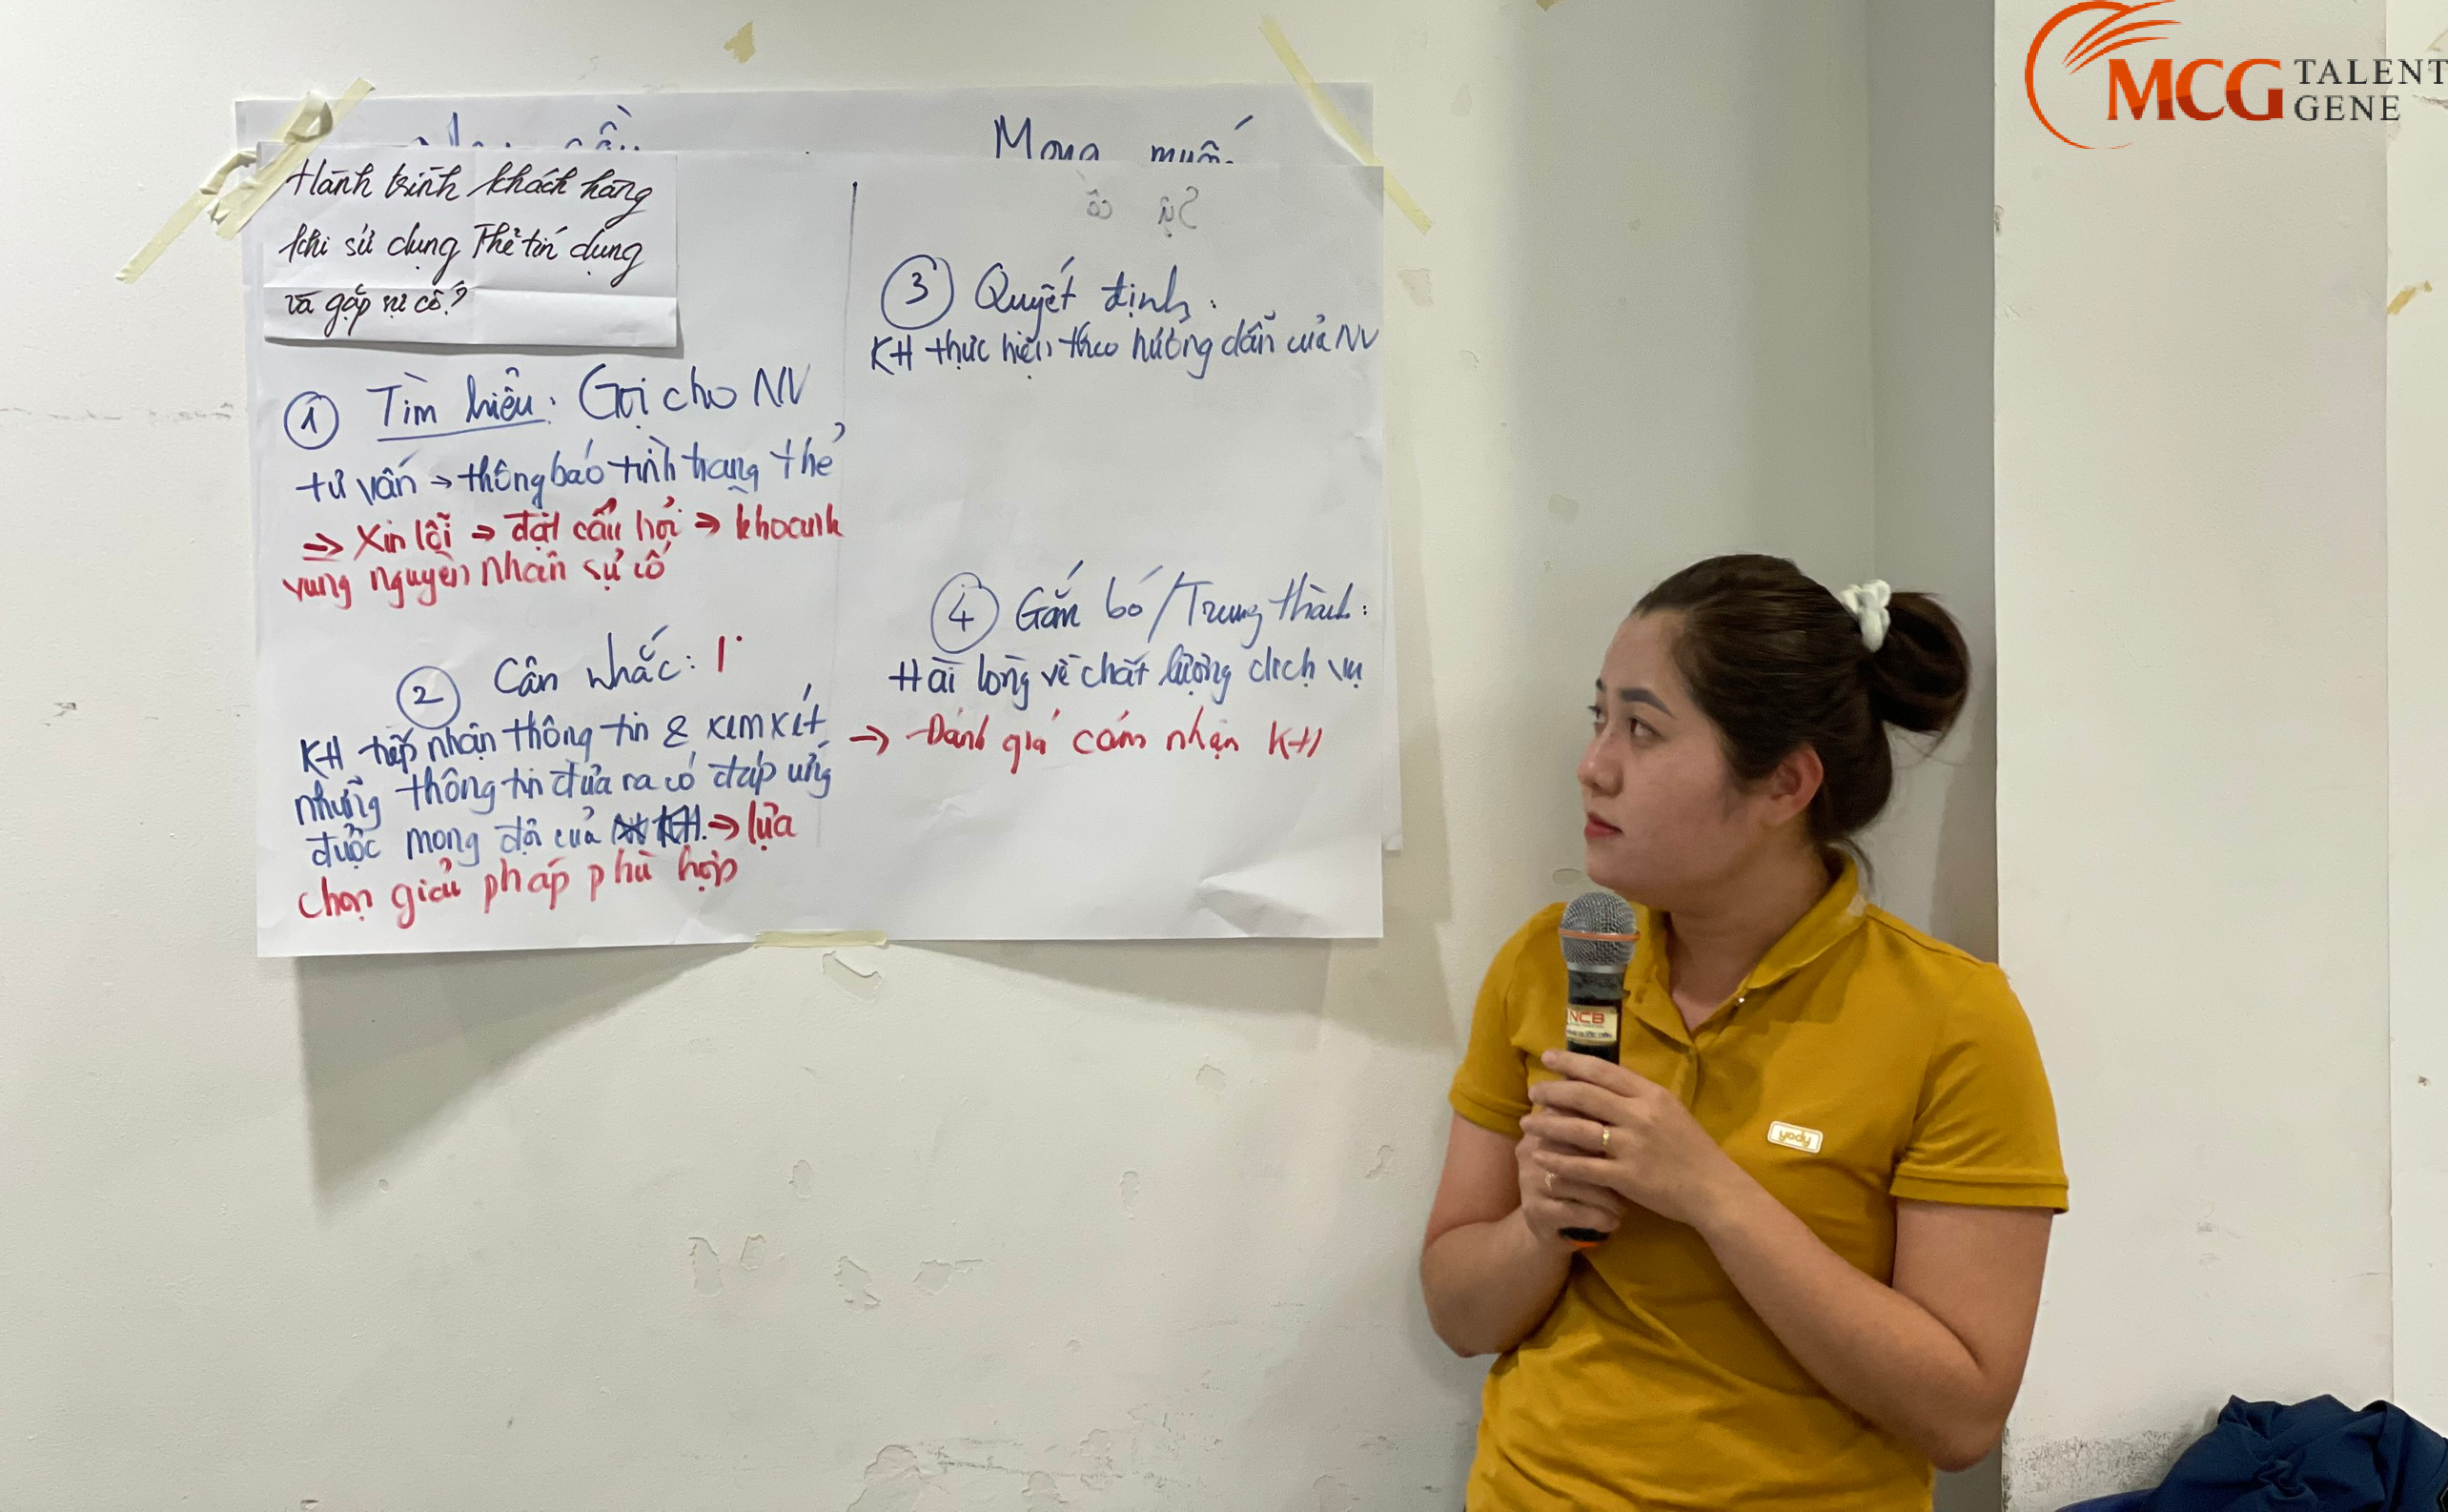 MCG TALENT
GENE
Mong muố
Sự cố
Hành trình khách hàng
khi sử dụng Thẻ tín dụng
và gặp sự cố?
① Tìm hiểu: Gọi cho NV
tư vấn → thông báo tình trạng thẻ
⇒ Xin lỗi ⇒ đặt câu hỏi ⇒ khoanh
vùng nguyên nhân sự cố
② Cân nhắc:
KH tiếp nhận thông tin & xem xét
những thông tin đưa ra có đáp ứng
được mong đợi của KH. ⇒ lựa
chọn giải pháp phù hợp
③ Quyết định:
KH thực hiện theo hướng dẫn của NV
④ Gắn bó/Trung thành:
Hài lòng về chất lượng dịch vụ
→ Đánh giá cảm nhận KH
NCB
yody